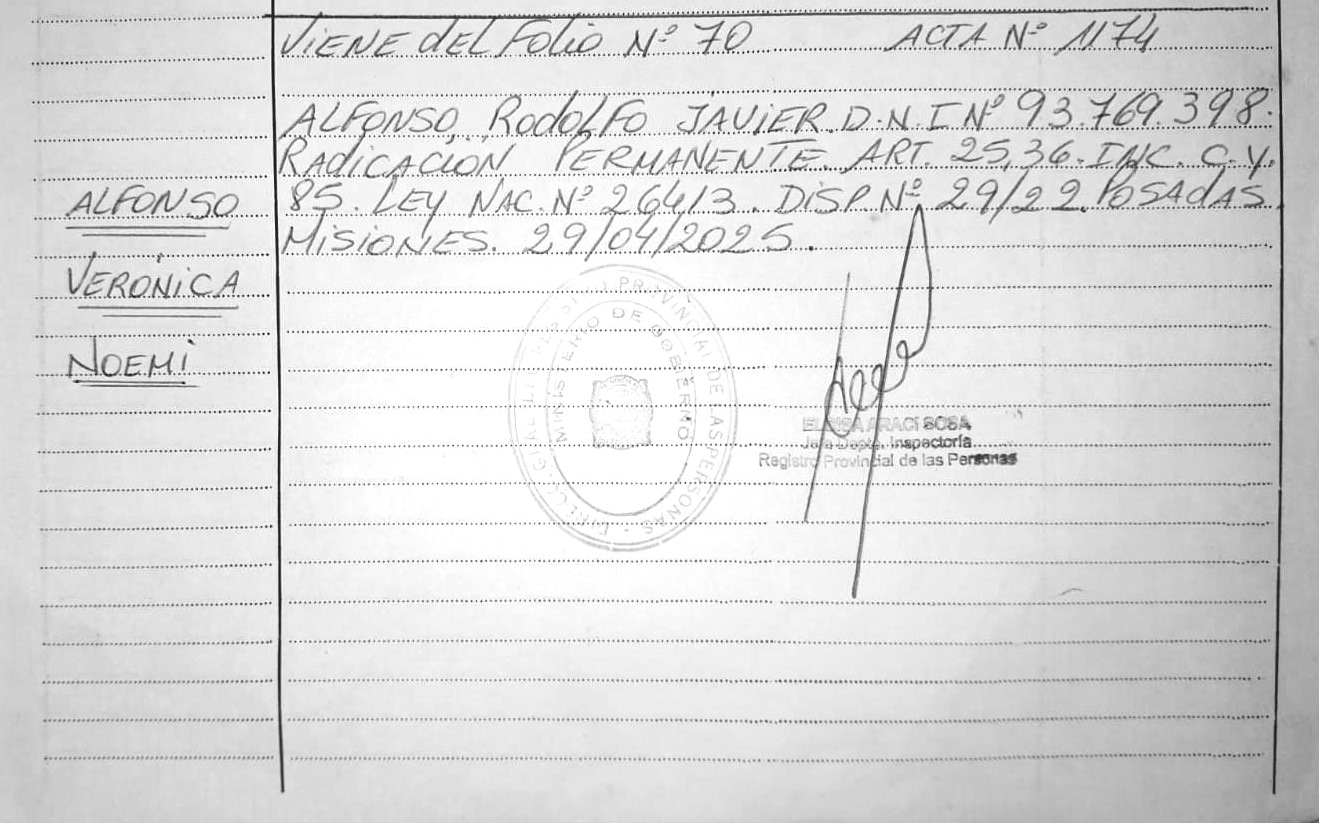 VIENE del Folio Nº 70 ACTA Nº 1174
ALFONSO, RodolFo JAVIER. D.N.I Nº 93.769.398.
RADICACIÓN PERMANENTE. ART. 25,36. INC. C.Y.
85. LEY NAC. Nº 26413. DISP. Nº 29/22. POSADAS
MISIONES. 29/04/2025.
ALFONSO
VERÓNICA
NOEMÍ
PROVINCIAL DE LAS PERSONAS
MINISTERIO DE GOBIERNO
ELOISA ARACI SOSA
Jefa Depto. Inspectoría
Registro Provincial de las Personas